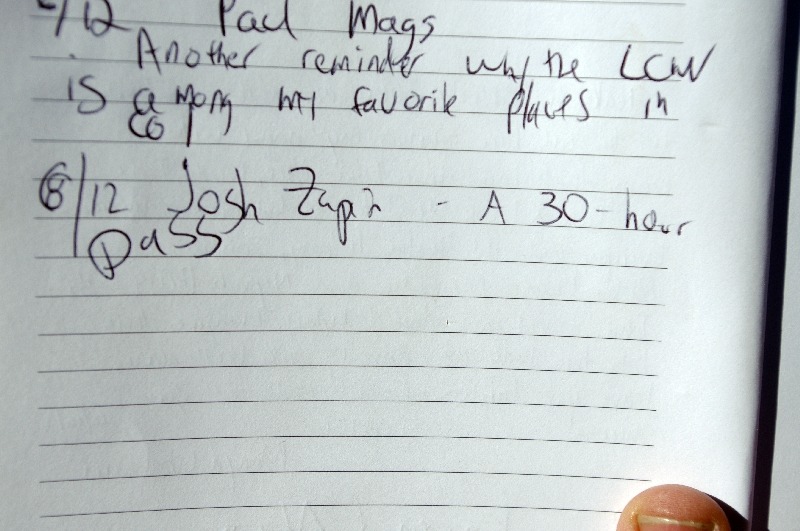 /12 Paul Mags
. Another reminder why the LCW
is among my favorite places in
CO
8/12 Josh Zapin - A 30-hour
pass